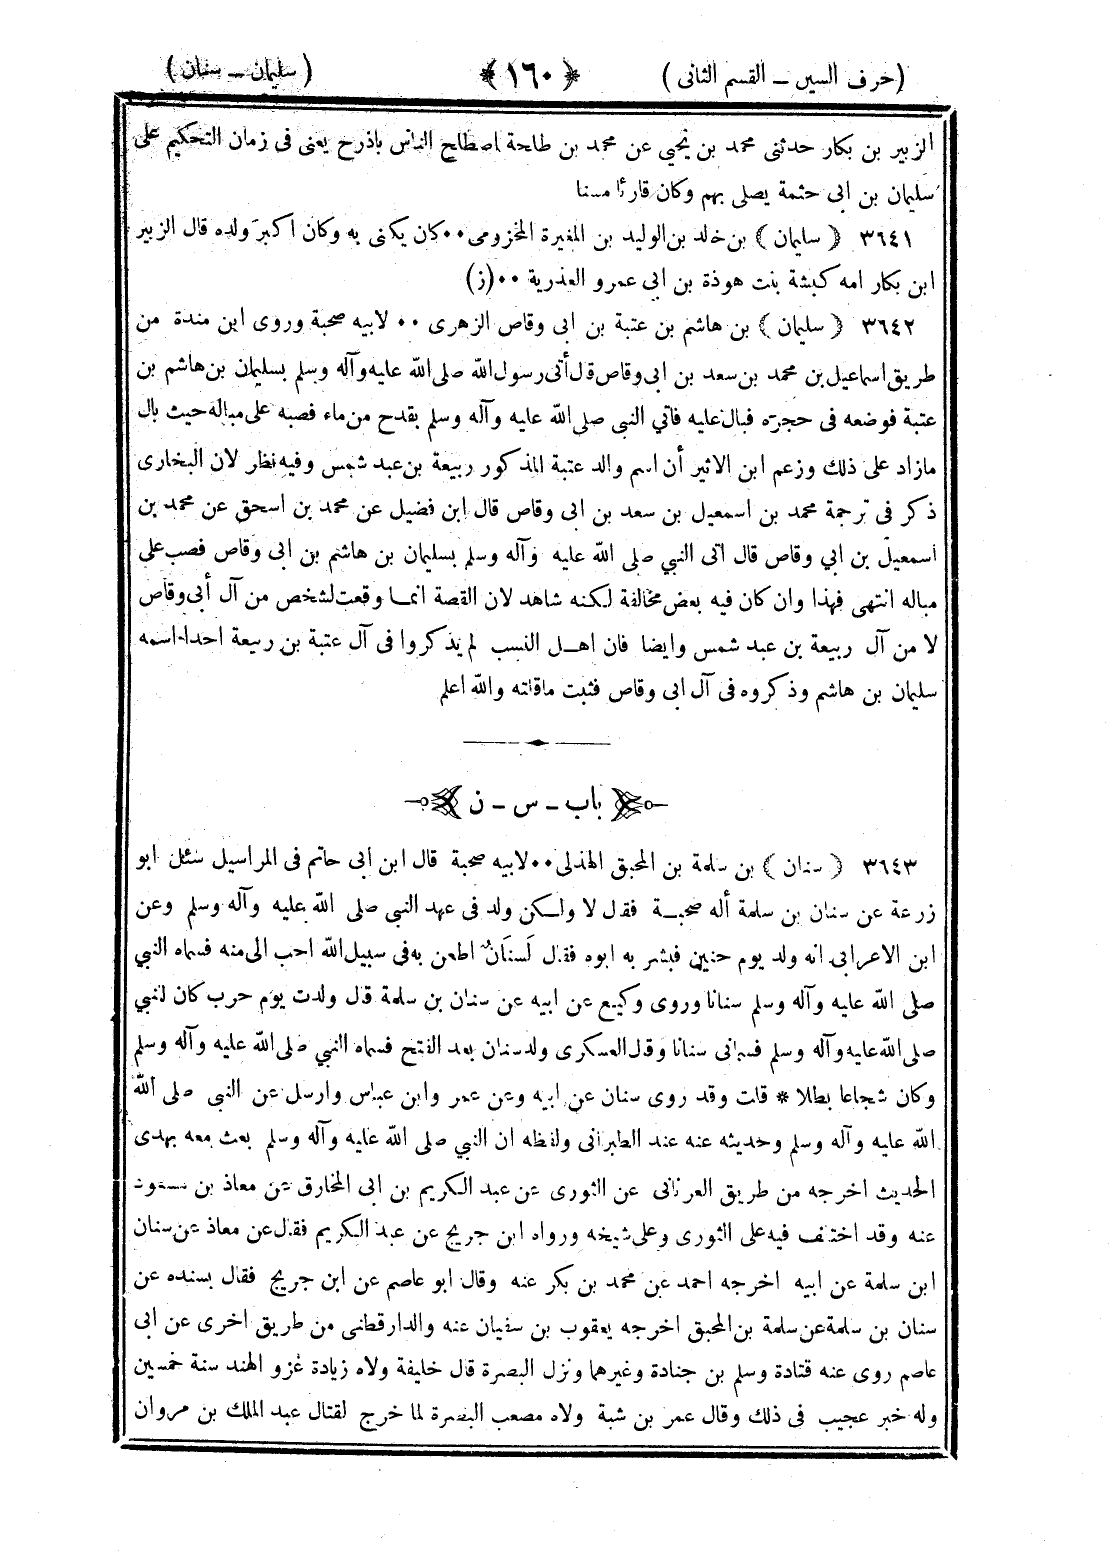 (حرف السين – القسم الثانى) ﴿١٦٠﴾ (سليمان – سنان)
الزبير بن بكار حدثنى محمد بن يحيى عن محمد بن طلحة اصطلح الناس باذرح يعنى فى زمان التحكيم على
سليمان بن ابى حثمة يصلى بهم وكان قارئا مسنا
٣٦٤١ ﴿ سليمان ﴾ بن خالد بن الوليد بن المغيرة المخزومى ٠٠ كان يكنى به وكان اكبر ولده قال الزبير
ابن بكار امه كبشة بنت هوذة بن ابى عمرو العذرية ٠٠ (ز)
٣٦٤٢ ﴿ سليمان ﴾ بن هاشم بن عتبة بن ابى وقاص الزهرى ٠٠ لابيه صحبة وروى ابن مندة من
طريق اسماعيل بن محمد بن سعد بن ابى وقاص قال أتى رسول الله صلى الله عليه وآله وسلم بسليمان بن هاشم بن
عتبة فوضعه فى حجره فبال عليه فاتي النبى صلى الله عليه وآله وسلم بقدح من ماء فصبه على مباله حيث بال
مازاد على ذلك وزعم ابن الاثير أن اسم والد عتبة المذكور ربيعة بن عبد شمس وفيه نظر لان البخارى
ذكر فى ترجمة محمد بن اسمعيل بن سعد بن ابى وقاص قال ابن فضيل عن محمد بن اسحق عن محمد بن
اسمعيل بن ابي وقاص قال اتى النبي صلى الله عليه وآله وسلم بسليمان بن هاشم بن ابى وقاص فصب على
مباله انتهى فهذا وان كان فيه بعض مخالفة لكنه شاهد لان القصة انما وقعت لشخص من آل أبى وقاص
لا من آل ربيعة بن عبد شمس وايضا فان اهل النسب لم يذكروا فى آل عتبة بن ربيعة احدا اسمه
سليمان بن هاشم وذكروه فى آل ابى وقاص فثبت ماقلته والله اعلم
باب – س – ن
٣٦٤٣ ﴿ سنان ﴾ بن سلمة بن المحبق الهذلى ٠٠ لابيه صحبة قال ابن ابى حاتم فى المراسيل سئل ابو
زرعة عن سنان بن سلمة أله صحبة فقل لا ولكن ولد فى عهد النبي صلى الله عليه وآله وسلم وعن
ابن الاعرابى انه ولد يوم حنين فبشر به ابوه فقال لَسنَان اطعن به فى سبيل الله احب الى منه فسماه النبي
صلى الله عليه وآله وسلم سنانا وروى وكيع عن ابيه عن سنان بن سلمة قال ولدت يوم حرب كان للنبي
صلى الله عليه وآله وسلم فسمانى سنانا وقال العسكرى ولد سنان بعد الفتح فسماه النبي صلى الله عليه وآله وسلم
وكان شجاعا بطلا * قلت وقد روى سنان عن ابيه وعن عمر وابن عباس وارسل عن النبى صلى الله
الله عليه وآله وسلم وحديثه عنه عند الطبرانى ولفظه ان النبي صلى الله عليه وآله وسلم بعث معه بهدى
الحديث اخرجه من طريق العرنانى عن الثورى عن عبد الكريم بن ابى المخارق عن معاذ بن مسعود
عنه وقد اختلف فيه على الثورى وعلى شيخه ورواه ابن جريج عن عبد الكريم فقال عن معاذ عن سنان
ابن سلمة عن ابيه اخرجه احمد عن محمد بن بكر عنه وقال ابو عاصم عن ابن جريج فقال بسنده عن
سنان بن سلمة عن سلمة بن المحبق اخرجه يعقوب بن سفيان عنه والدارقطنى من طريق اخرى عن ابى
عاصم روى عنه قتادة وسلم بن جنادة وغيرهما ونزل البصرة قال خليفة ولاه زيادة غزو الهند سنة خمسين
وله خبر عجيب فى ذلك وقال عمر بن شبة ولاه مصعب البصرة لما خرج لقتال عبد الملك بن مروان